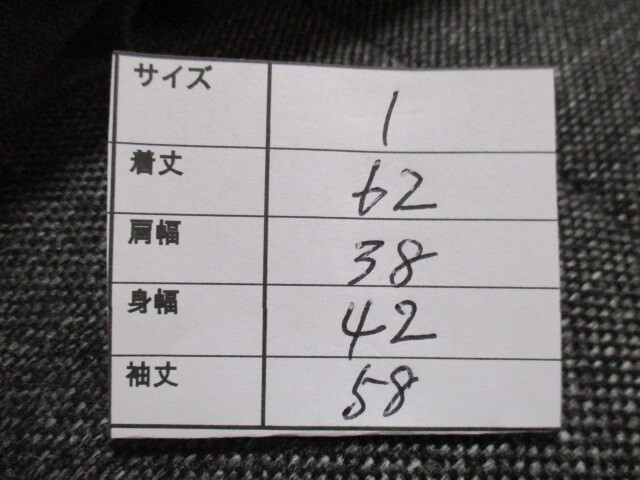 サイズ 1
着丈 62
肩幅 38
身幅 42
袖丈 58